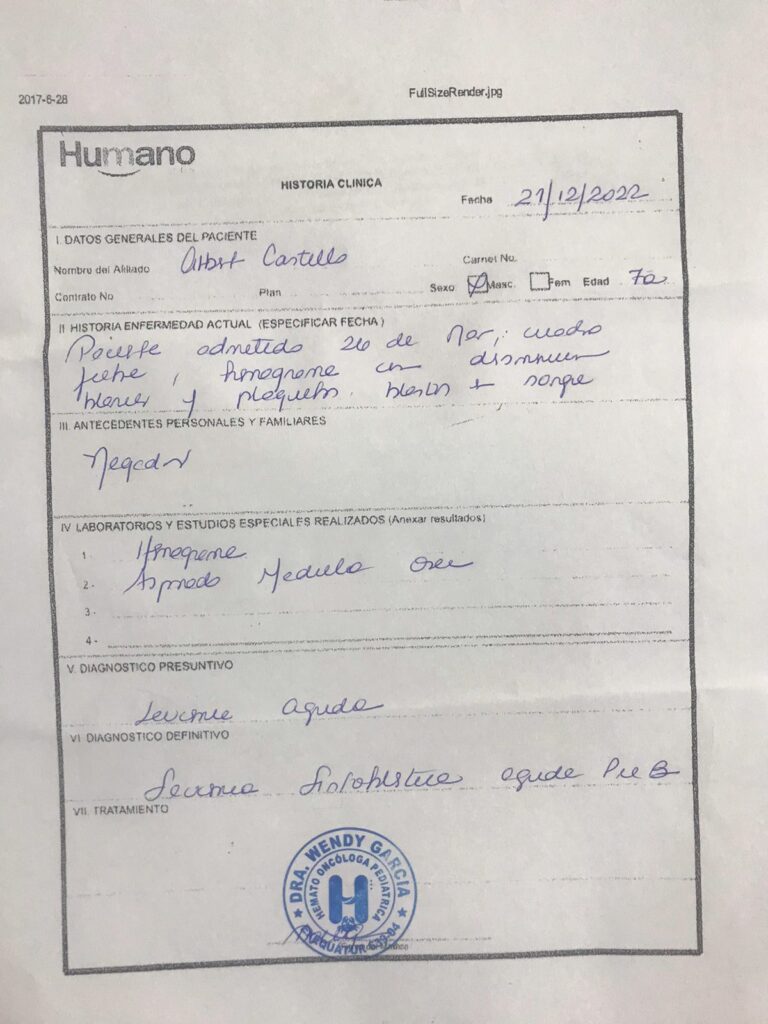 2017-6-28
FullSizeRender.jpg
Humano
HISTORIA CLINICA
Fecha 21/12/2022
I. DATOS GENERALES DEL PACIENTE
Nombre del Afiliado Albert Castillo Carnet No.
Contrato No Plan Sexo Masc. Fem Edad 7a
II HISTORIA ENFERMEDAD ACTUAL (ESPECIFICAR FECHA)
Paciente admitido 26 de Nov, cuadro
fiebre, hemograma con disminucion
blancos y plaquetas. blastos + sangre
III. ANTECEDENTES PERSONALES Y FAMILIARES
Negados
IV LABORATORIOS Y ESTUDIOS ESPECIALES REALIZADOS (Anexar resultados)
1 Hemograma
2 - Aspirado Medula Osea
3 -
4 -
V. DIAGNOSTICO PRESUNTIVO
Leucemia Aguda
VI DIAGNOSTICO DEFINITIVO
Leucemia Linfoblastica aguda Pre B
VII. TRATAMIENTO
DRA. WENDY GARCIA
HEMATO ONCÓLOGA PEDIATRICA
H
EXEQUATUR